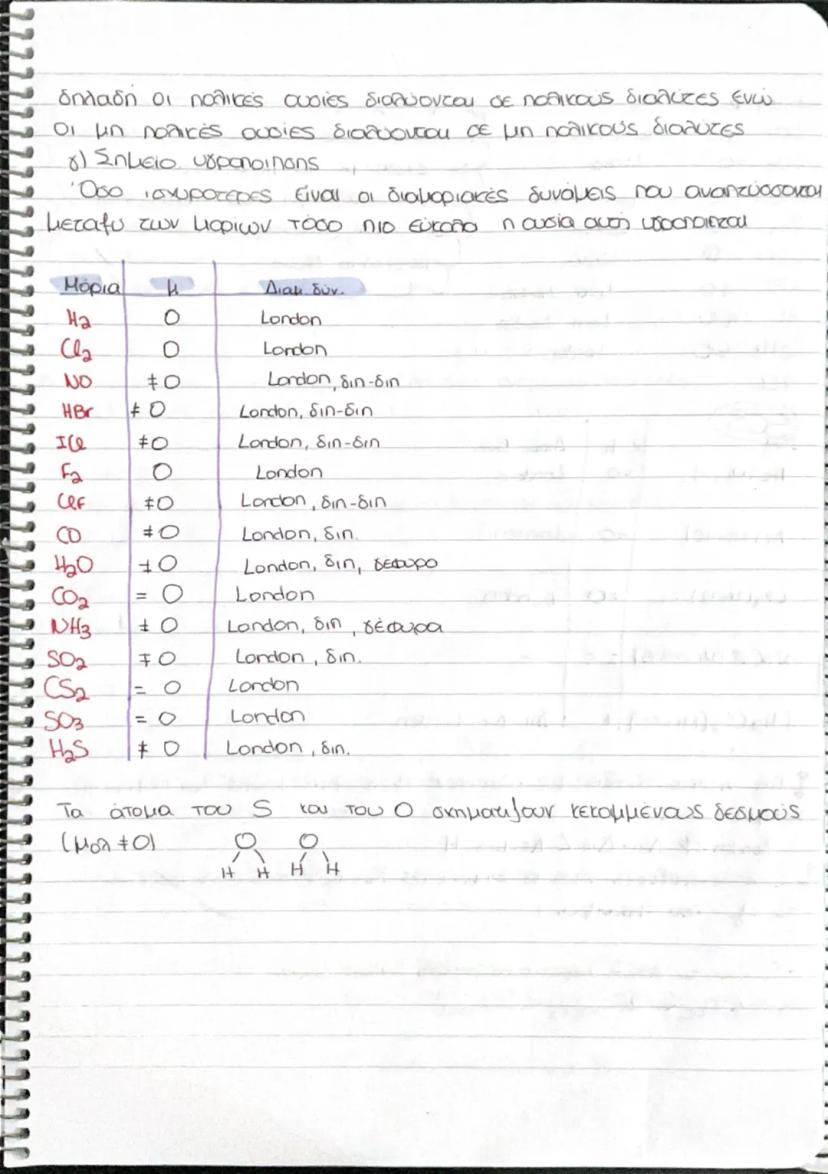 δηλαδή οι πολικές ουσίες διαλύονται σε πολικούς διαλύτες ενώ
οι μη πολικές ουσίες διαλύονται σε μη πολικούς διαλύτες
γ) Σημείο υγροποίησης
Όσο ισχυρότερες είναι οι διαμοριακές δυνάμεις που αναπτύσσονται
μεταξύ των μορίων τόσο πιο εύκολα η ουσία αυτή υγροποιείται
Μόρια μ Διαμ. δυν.
H2 0 London
Cl2 0 London
NO ≠0 London, διπ-διπ
HBr ≠0 London, διπ-διπ
ICl ≠0 London, διπ-διπ
F2 0 London
ClF ≠0 London, διπ-διπ
CO ≠0 London, διπ.
H2O ≠0 London, διπ, γέφυρο
CO2 = 0 London
NH3 ≠ 0 London, διπ, γέφυρα
SO2 ≠0 London, διπ.
CS2 = 0 London
SO3 = 0 London
H2S ≠ 0 London, διπ.
Τα άτομα του S και του O σχηματίζουν κεκαμμένους δεσμούς
(μολ ≠0) O O
H H H H